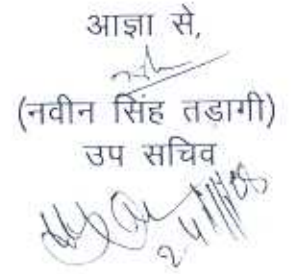 आज्ञा से,
(नवीन सिंह तडागी)
उप सचिव